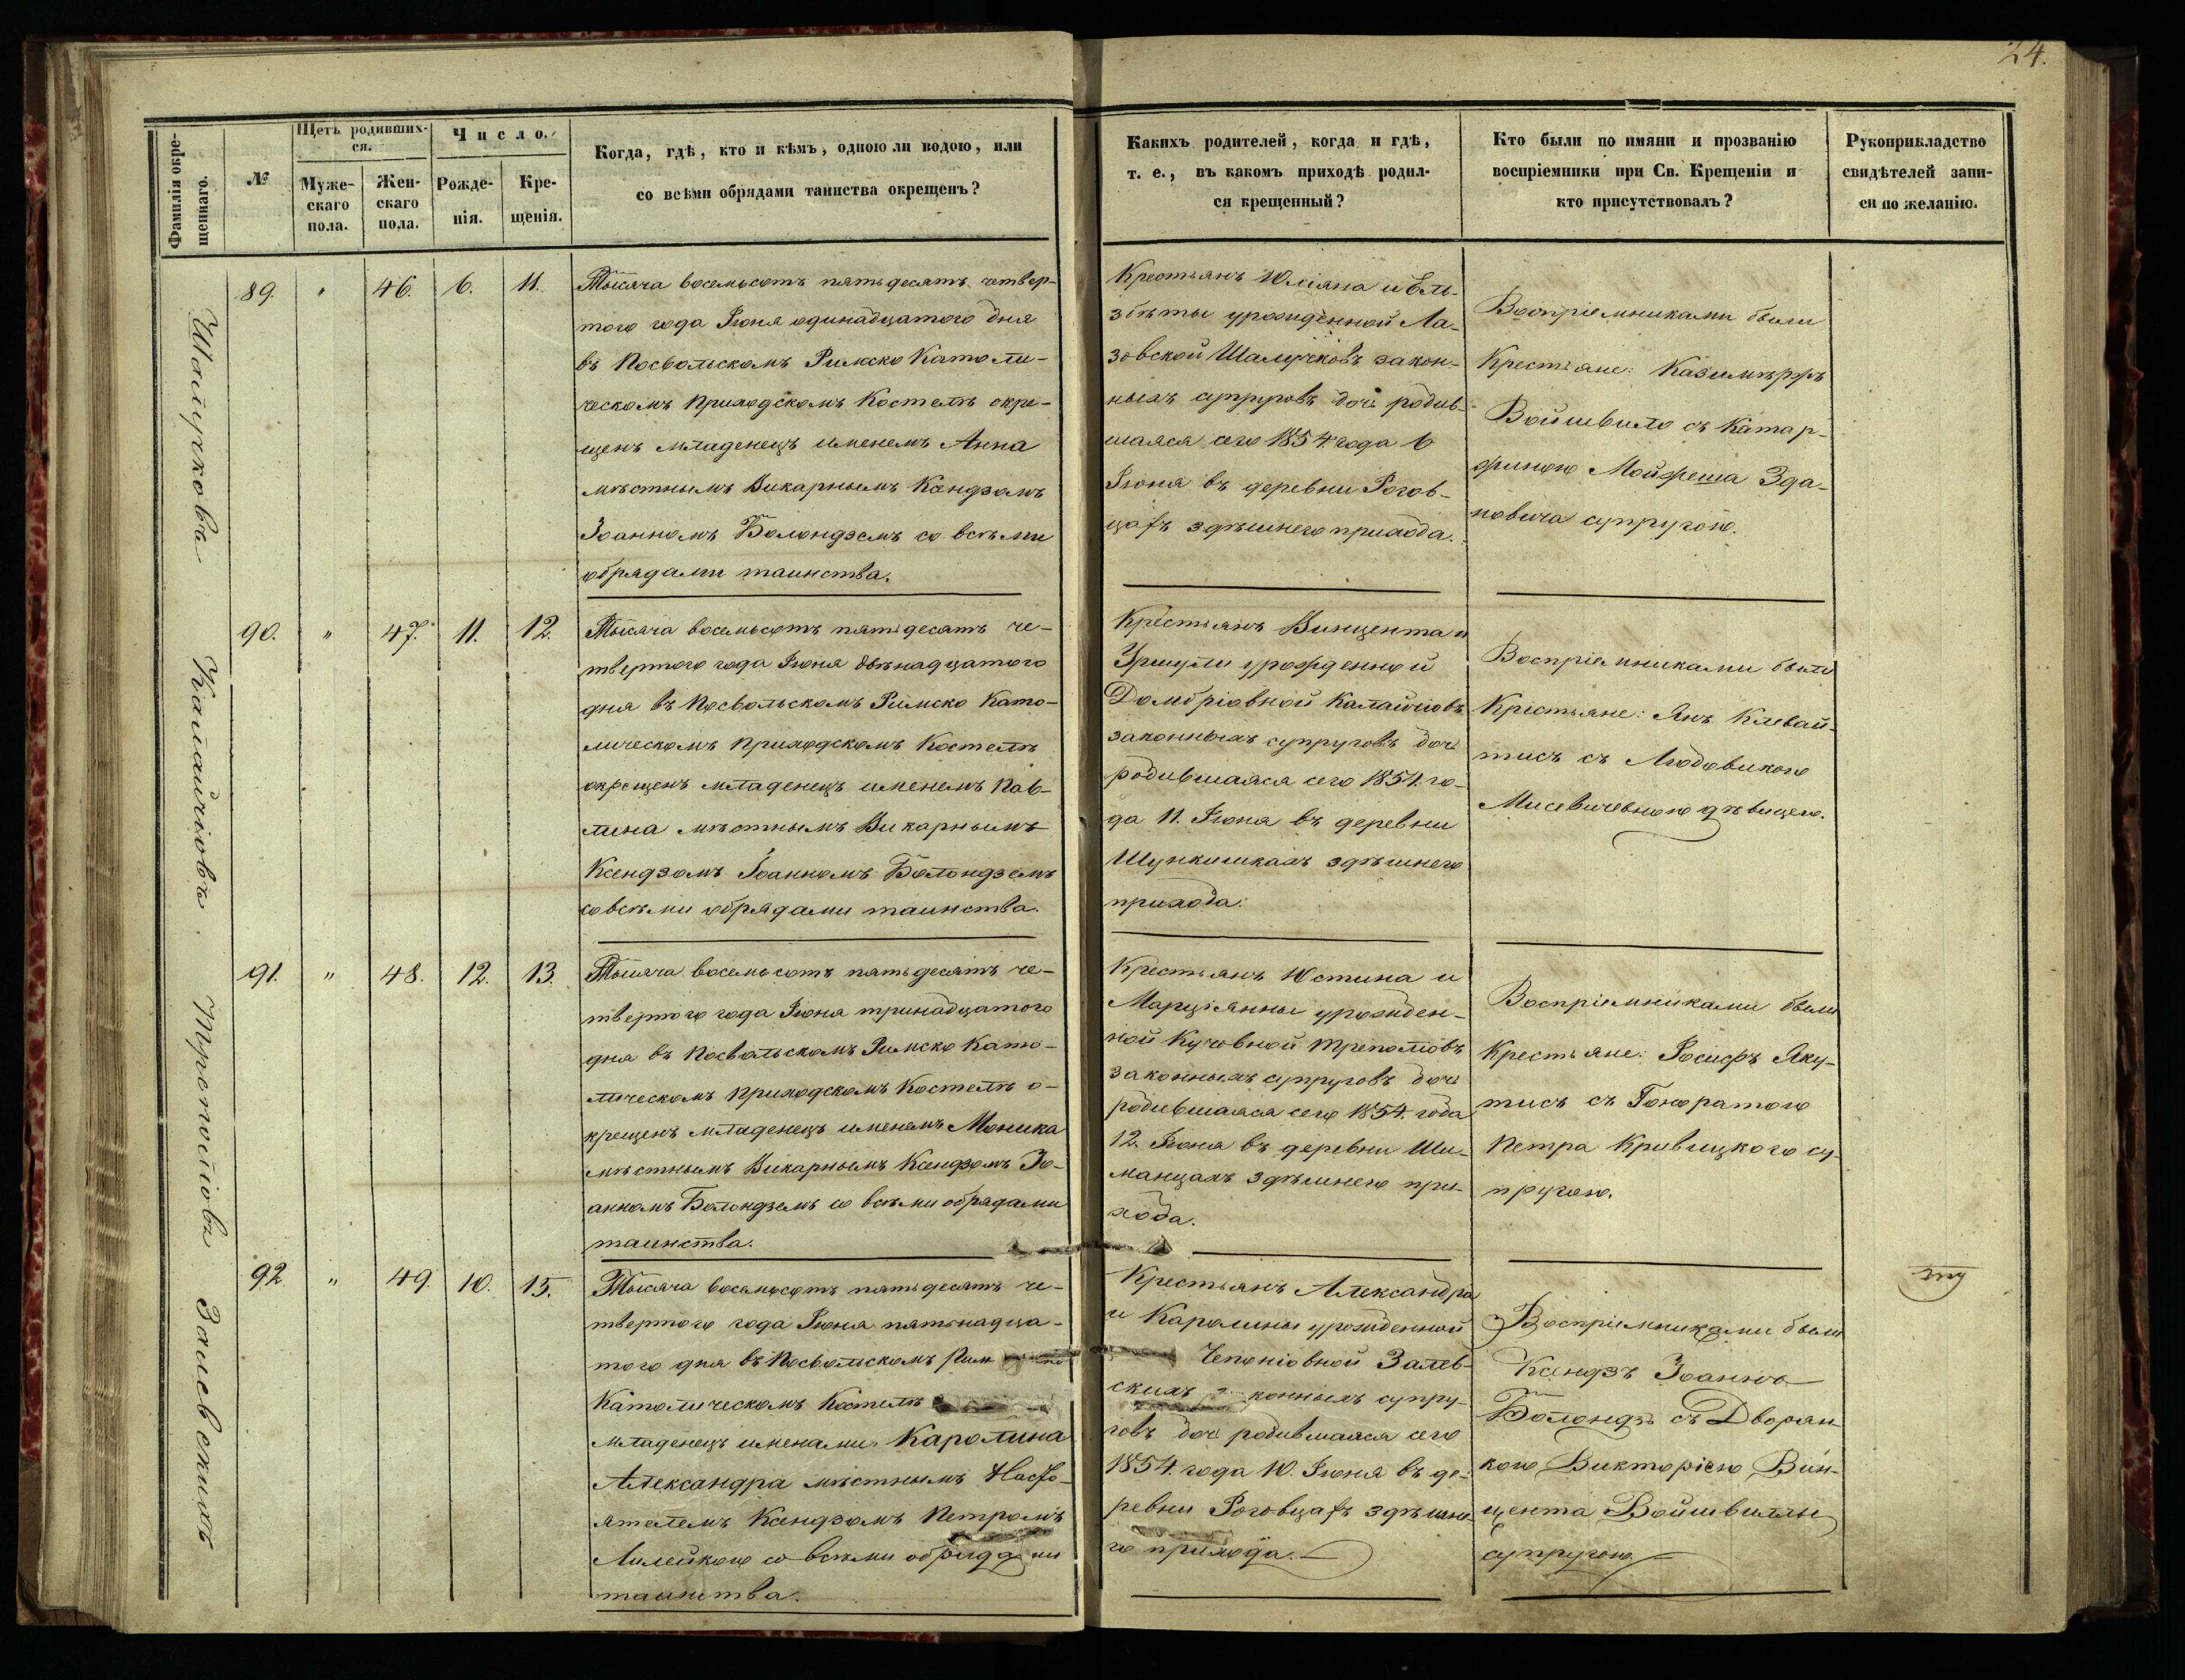 24.
Фамилія окре-
щеннаго.
№
Щетъ родивших-
ся.
Муже-
скаго
пола.
Жен-
скаго
пола.
Число.
Рожде-
нія.
Кре-
щенія.
Когда, гдѣ, кто и кѣмъ, одною ли водою, или
со всѣми обрядами таинства окрещенъ?
Какихъ родителей, когда и гдѣ,
т. е., въ какомъ приходѣ родил-
ся крещенный?
Кто были по имяни и прозванію
воспріемники при Св. Крещеніи и
кто присутствовалъ?
Рукоприкладство
свидѣтелей запи-
си по желанію.
89. " 46. 6. 11.
Тысяча восемьсотъ пятьдесятъ четвер-
того года Іюня одинадцатого дня
въ Посвольскомъ Римско Католи-
ческомъ Приходскомъ Костелѣ окре-
щенъ младенецъ именемъ Анна
мѣстнымъ Викарнымъ Ксендзомъ
Іоанномъ Болондземъ со всѣми
обрядами таинства.
Крестьянъ Юліяна и Ель-
збѣты урожденной Ла-
зовской Шалучковъ закон-
ныхъ супруговъ дочь родив-
шаяся сего 1854 года 6
Іюня въ деревни Рогов-
цахъ здѣшнего прихода.
Воспріемниками были
Крестьяне: Казимѣржъ
Войшвило съ Катар-
жиною Мойжеша Зда-
новича супругою.
Калайчіовъ
90. " 47. 11. 12.
Тысяча восемьсотъ пятьдесятъ че-
твертого года Іюня двѣнадцатого
дня въ Посвольскомъ Римско Като-
лическомъ Приходскомъ Костелѣ
окрещенъ младенецъ именемъ Пав-
лина мѣстнымъ Викарнымъ
Ксендзомъ Іоанномъ Болондземъ
со всѣми обрядами таинства.
Крестьянъ Винцента и
Уршули урожденной
Домбріовной Калайчіовъ
законныхъ супруговъ дочь
родившаяся сего 1854. го-
да 11. Іюня въ деревни
Шункишкахъ здѣшнего
прихода.
Воспріемниками были
Крестьяне: Янъ Клевай-
тисъ съ Людовикою
Мисевичевною дѣвицею.
Треполіовъ
91. " 48. 12. 13.
Тысяча восемьсотъ пятьдесятъ че-
твертого года Іюня тринадцатого
дня въ Посвольскомъ Римско Като-
лическомъ Приходскомъ Костелѣ о-
крещенъ младенецъ именемъ Моника
мѣстнымъ Викарнымъ Ксендзомъ Іо-
анномъ Болондземъ со всѣми обрядами
таинства.
Крестьянъ Юстина и
Марціянны урожден-
ной Кучовной Треполіовъ
законныхъ супруговъ дочь
родившаяся сего 1854. года
12. Іюня въ деревни Ши-
манцахъ здѣшнего при-
хода.
Воспріемниками были
Крестьяне: Іосифъ Яку-
тисъ съ Гоноратою
Петра Кривицкого су-
пругою.
Залевскихъ
92 " 49. 10. 15.
Тысяча восемьсотъ пятьдесятъ че-
твертого года Іюня пятьнадца-
того дня въ Посвольскомъ Рим
Католическомъ Костелѣ
младенецъ именами Каролина
Александра мѣстнымъ Насто-
ятелемъ Ксендзомъ Петромъ
Лилейкою со всѣми обрядами
таинства.
Крестьянъ Александра
и Каролины урожденной
Чепоніовной Залев-
скихъ законныхъ супру-
говъ дочь родившаяся сего
1854. года 10. Іюня въ де-
ревни Роговцахъ здѣшне-
го прихода.
Воспріемниками были
Ксендзъ Іоаннъ
Болондзь съ Дворян-
кою Викторіею Вин-
цента Войшвиллы
супругою.